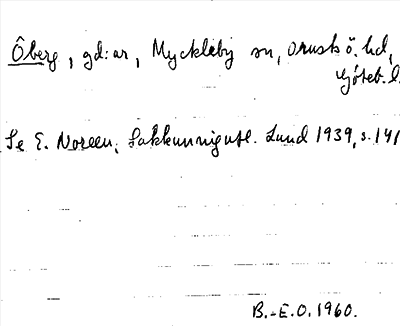 Ôberg, gd:ar, Myckleby sn, Orusts ö. hd,
Göteb. l.
Se E. Noreen, Sakkunnigutl. Lund 1939, s. 141
B.-E.O. 1960.